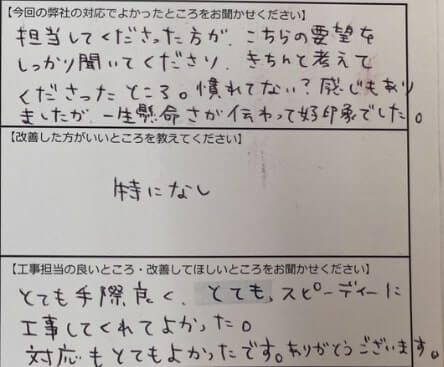 【今回の弊社の対応でよかったところをお聞かせください】
担当してくださった方が、こちらの要望を
しっかり聞いてくださり、きちんと考えて
くださったところ。慣れてない？感じもあり
ましたが、一生懸命さが伝わって好印象でした。
【改善した方がいいところを教えてください】
特になし
【工事担当の良いところ・改善してほしいところをお聞かせください】
とても手際良く、とても、スピーディーに
工事してくれてよかった。
対応もとてもよかったです。ありがとうございます。